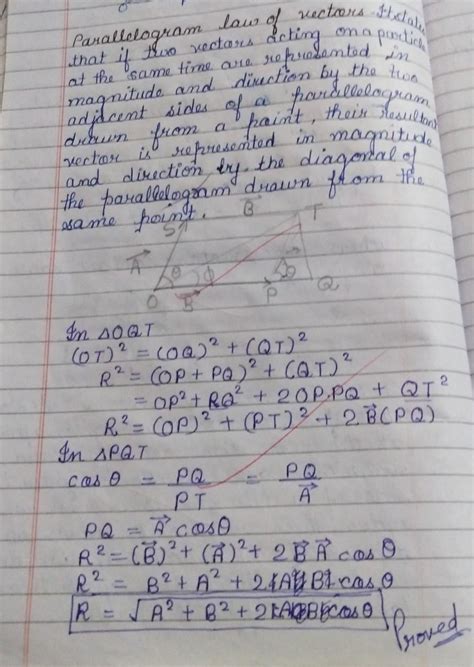 Parallelogram law of vectors. It states
that if two vectors acting on a particle
at the same time are represented in
magnitude and direction by the two
adjcent sides of a parallelogram
drawn from a point, their resultant
vector is represented in magnitude
and direction by the diagonal of
the parallelogram drawn from the
same point.
B⃗
S T
A⃗ θ ϕ θ
O B⃗ P Q
In △OQT
(OT)² = (OQ)² + (QT)²
R² = (OP + PQ)² + (QT)²
= OP² + PQ² + 2OP.PQ + QT²
R² = (OP)² + (PT)² + 2B⃗(PQ)
In △PQT
cosθ = PQ/PT = PQ/A⃗
PQ = A⃗ cosθ
R² = (B⃗)² + (A⃗)² + 2B⃗ A⃗ cosθ
R² = B² + A² + 2|A||B|.cosθ
R = √A² + B² + 2|A||B|cosθ
Proved